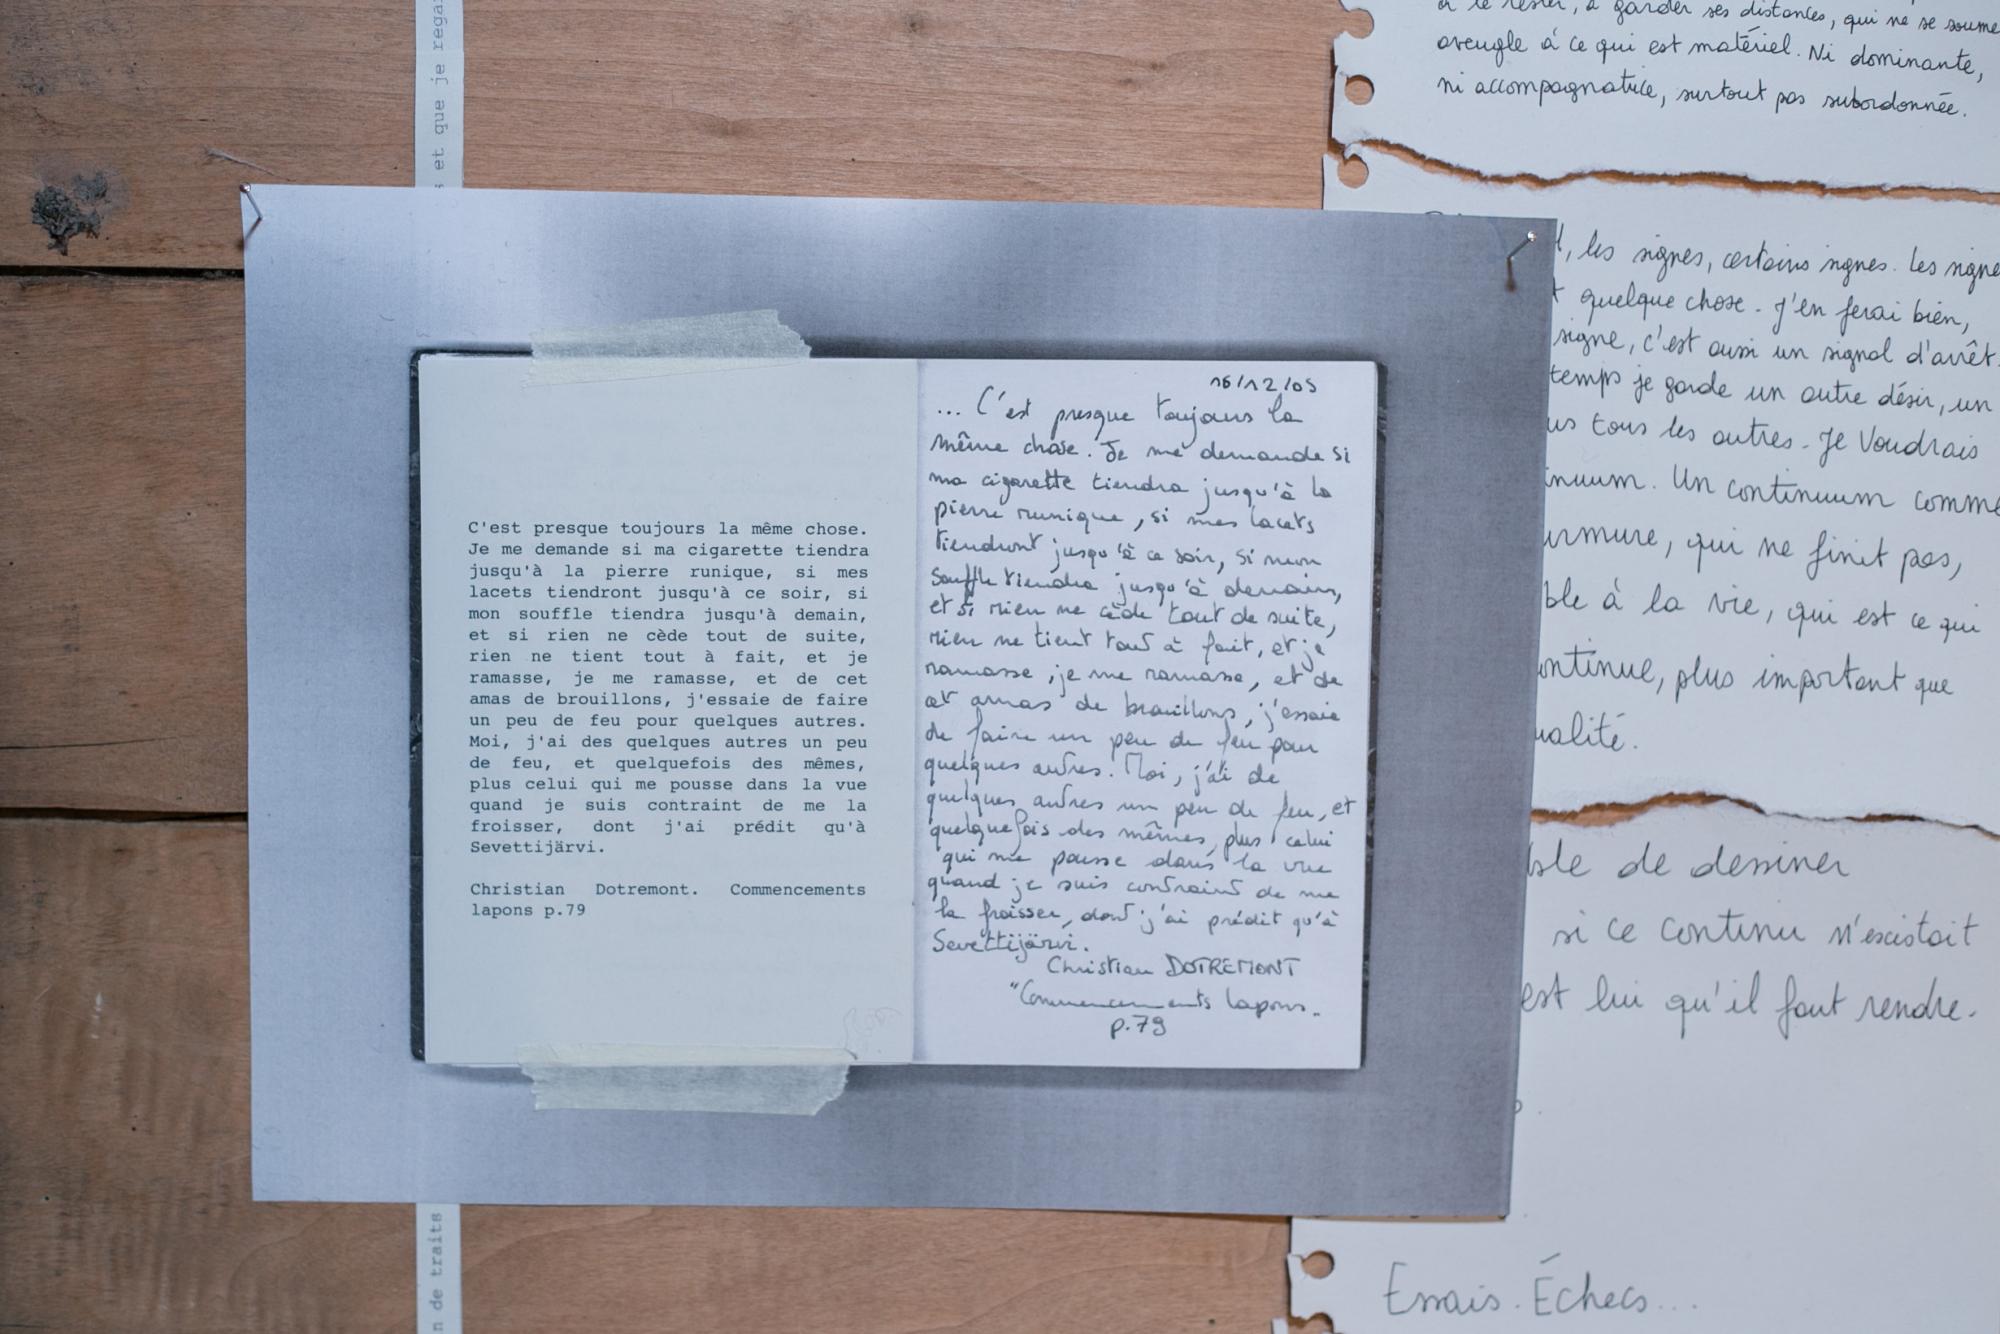 s et que je regar
n de traits
C'est presque toujours la même chose.
Je me demande si ma cigarette tiendra
jusqu'à la pierre runique, si mes
lacets tiendront jusqu'à ce soir, si
mon souffle tiendra jusqu'à demain,
et si rien ne cède tout de suite,
rien ne tient tout à fait, et je
ramasse, je me ramasse, et de cet
amas de brouillons, j'essaie de faire
un peu de feu pour quelques autres.
Moi, j'ai des quelques autres un peu
de feu, et quelquefois des mêmes,
plus celui qui me pousse dans la vue
quand je suis contraint de me la
froisser, dont j'ai prédit qu'à
Sevettijärvi.
Christian Dotremont. Commencements
lapons p.79
16/12/05
... C'est presque toujours la
même chose. Je me demande si
ma cigarette tiendra jusqu'à la
pierre runique, si mes lacets
tiendront jusqu'à ce soir, si mon
souffle tiendra jusqu'à demain,
et si rien ne cède tout de suite,
rien ne tient tout à fait, et je
ramasse, je me ramasse, et de
cet amas de brouillons, j'essaie
de faire un peu de feu pour
quelques autres. Moi, j'ai de
quelques autres un peu de feu, et
quelquefois des mêmes, plus celui
qui me pousse dans la vue
quand je suis contraint de me
la froisser, dont j'ai prédit qu'à
Sevettijärvi.
Christian DOTREMONT
"Commencements lapons.
p.79
à garder ses distances, qui ne se soume
aveugle à ce qui est matériel. Ni dominante,
ni accompagnatrice, surtout pas subordonnée.
, les signes, certains signes. Les signe
quelque chose. J'en ferai bien,
signe, c'est aussi un signal d'arrêt.
temps je garde un autre désir, un
us tous les autres. Je voudrais
inuum. Un continuum comme
urmure, qui ne finit pas,
ble à la vie, qui est ce qui
ontinue, plus important que
ualité.
ble de dessiner
si ce continu n'existait
est lui qu'il faut rendre.
Essais. Échecs...